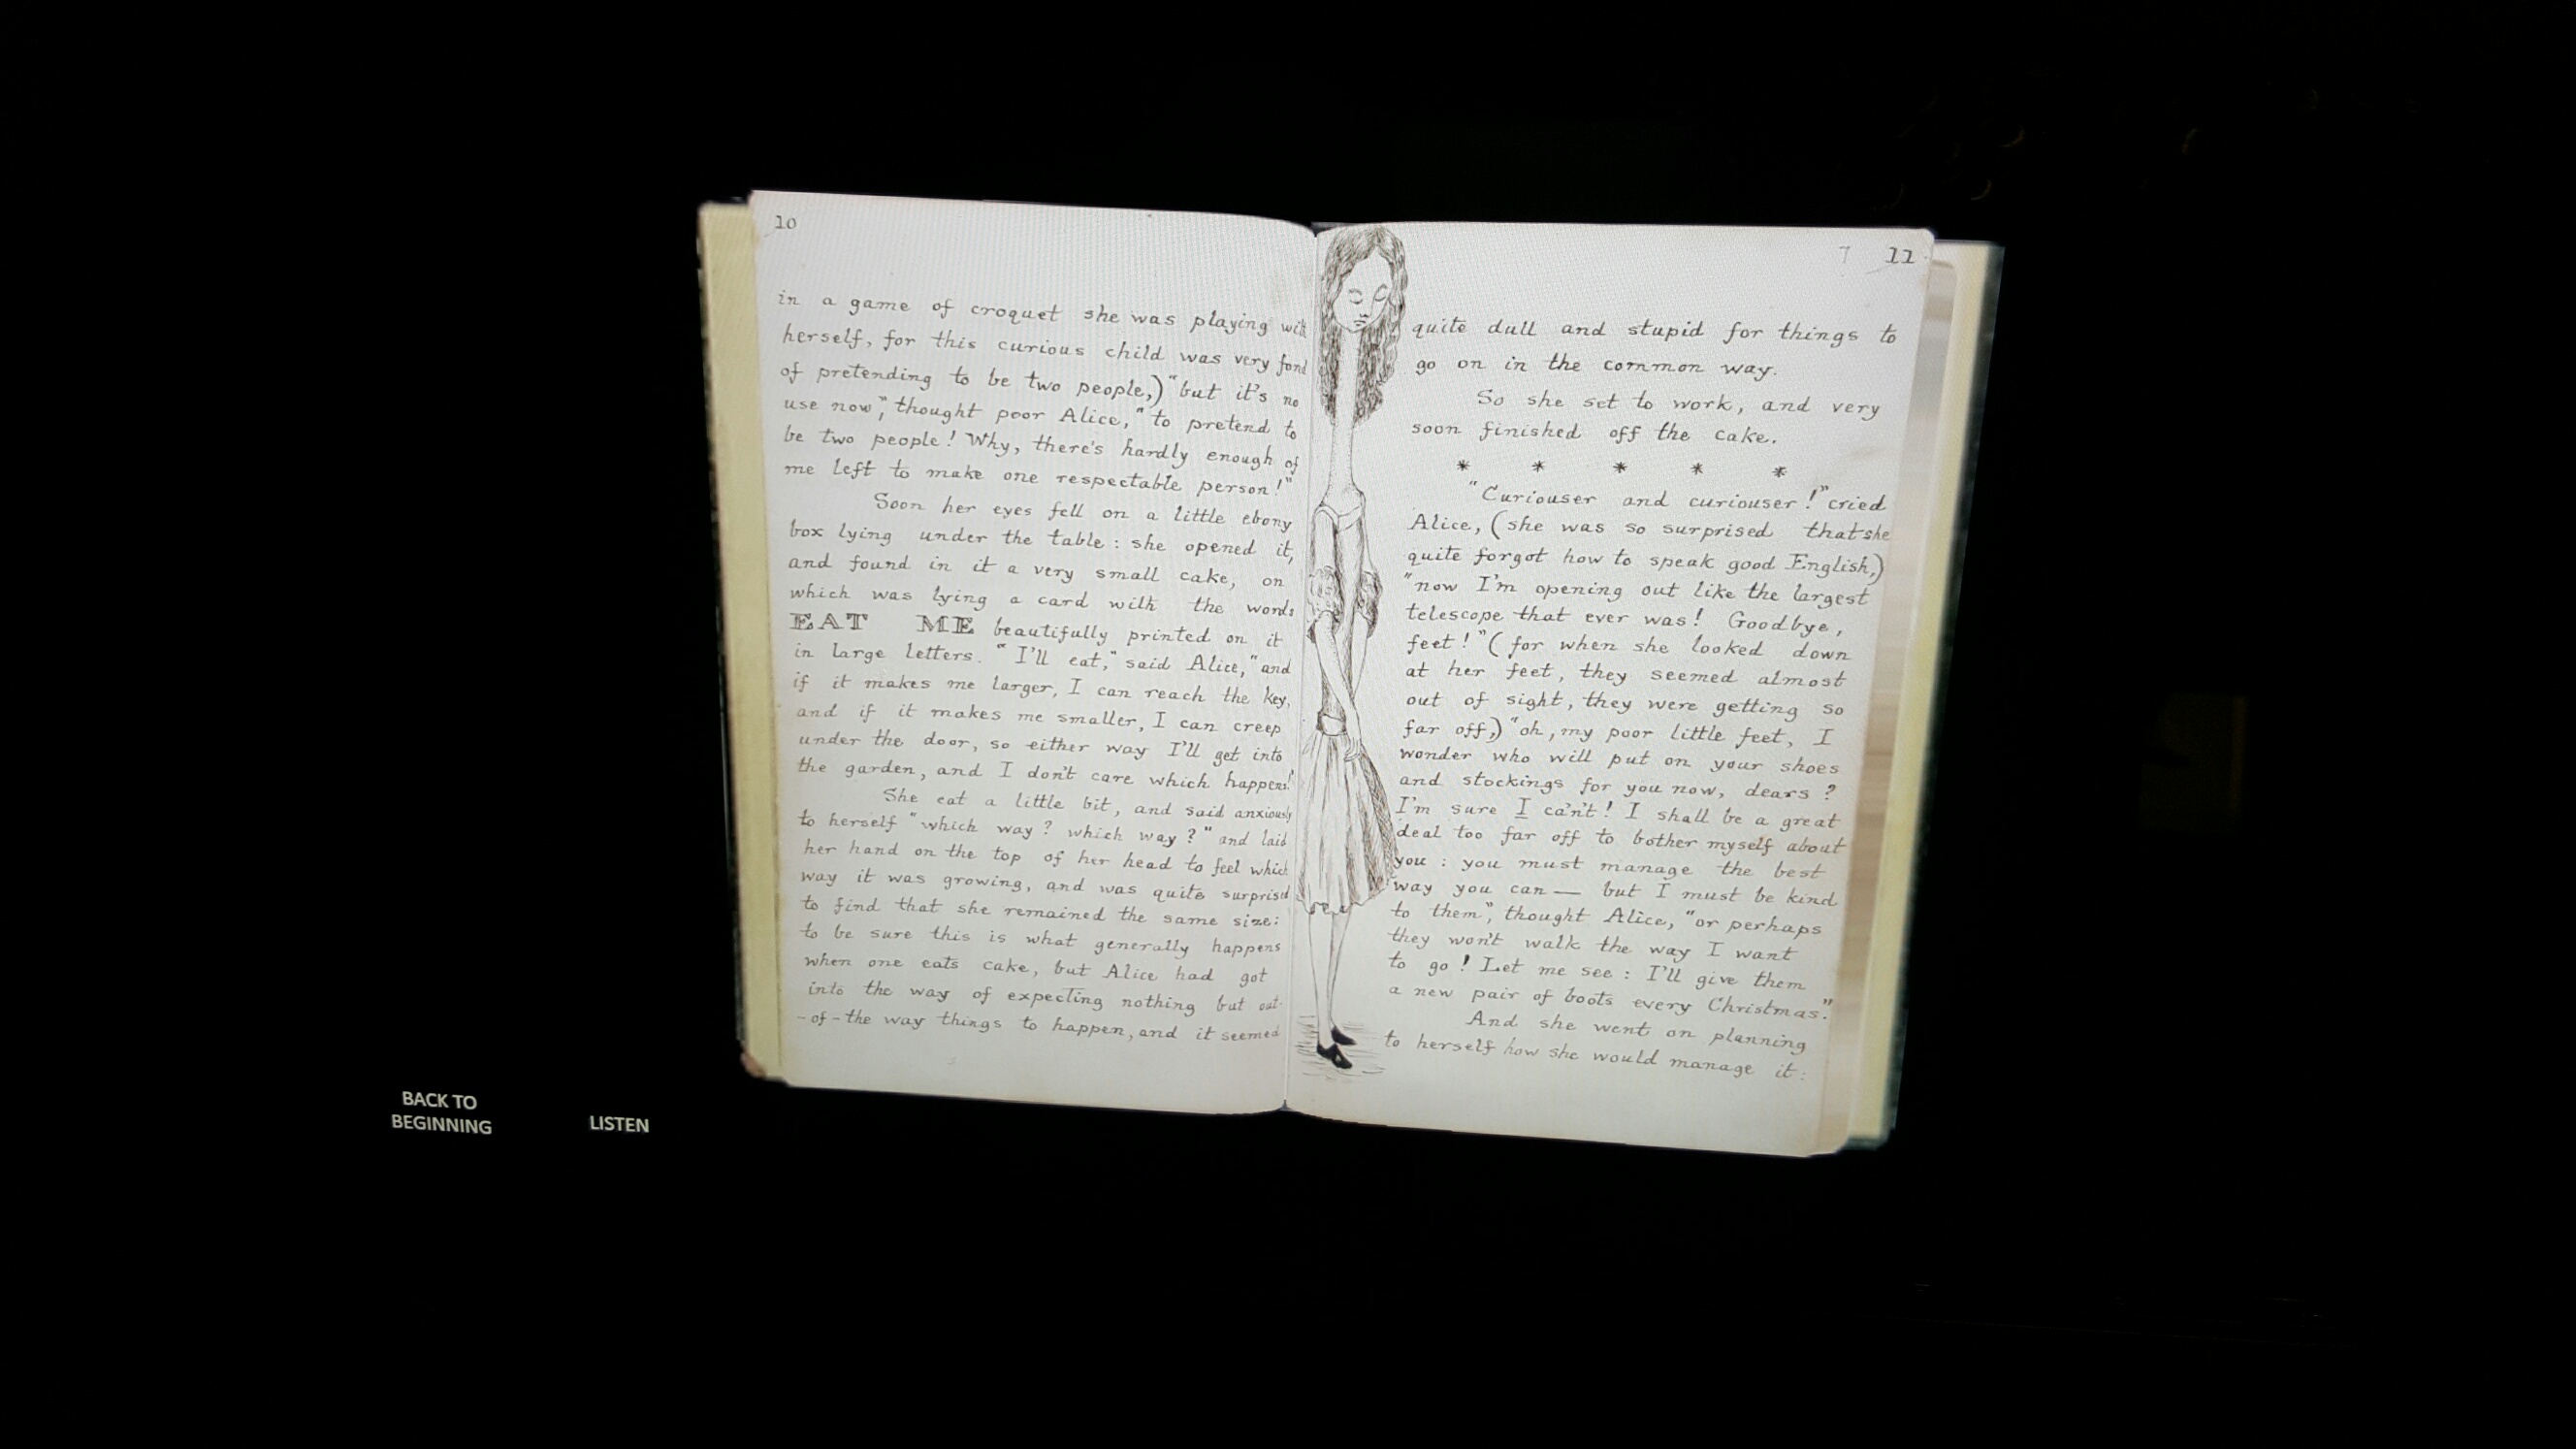 10
in a game of croquet she was playing with
herself, for this curious child was very fond
of pretending to be two people,) "but it's no
use now," thought poor Alice, "to pretend to
be two people! Why, there's hardly enough of
me left to make one respectable person!"
Soon her eyes fell on a little ebony
box lying under the table: she opened it,
and found in it a very small cake, on
which was lying a card with the words
EAT ME beautifully printed on it
in large letters. "I'll eat," said Alice, "and
if it makes me larger, I can reach the key,
and if it makes me smaller, I can creep
under the door, so either way I'll get into
the garden, and I don't care which happens!"
She eat a little bit, and said anxiously
to herself "which way? which way?" and laid
her hand on the top of her head to feel which
way it was growing, and was quite surprised
to find that she remained the same size:
to be sure this is what generally happens
when one eats cake, but Alice had got
into the way of expecting nothing but out-
-of-the way things to happen, and it seemed
7 11
quite dull and stupid for things to
go on in the common way.
So she set to work, and very
soon finished off the cake.
* * * * *
"Curiouser and curiouser!" cried
Alice, (she was so surprised that she
quite forgot how to speak good English,)
"now I'm opening out like the largest
telescope that ever was! Goodbye,
feet!" (for when she looked down
at her feet, they seemed almost
out of sight, they were getting so
far off,) "oh, my poor little feet, I
wonder who will put on your shoes
and stockings for you now, dears?
I'm sure I ca'n't! I shall be a great
deal too far off to bother myself about
you: you must manage the best
way you can — but I must be kind
to them," thought Alice, "or perhaps
they won't walk the way I want
to go! Let me see: I'll give them
a new pair of boots every Christmas."
And she went on planning
to herself how she would manage it:
BACK TO
BEGINNING
LISTEN